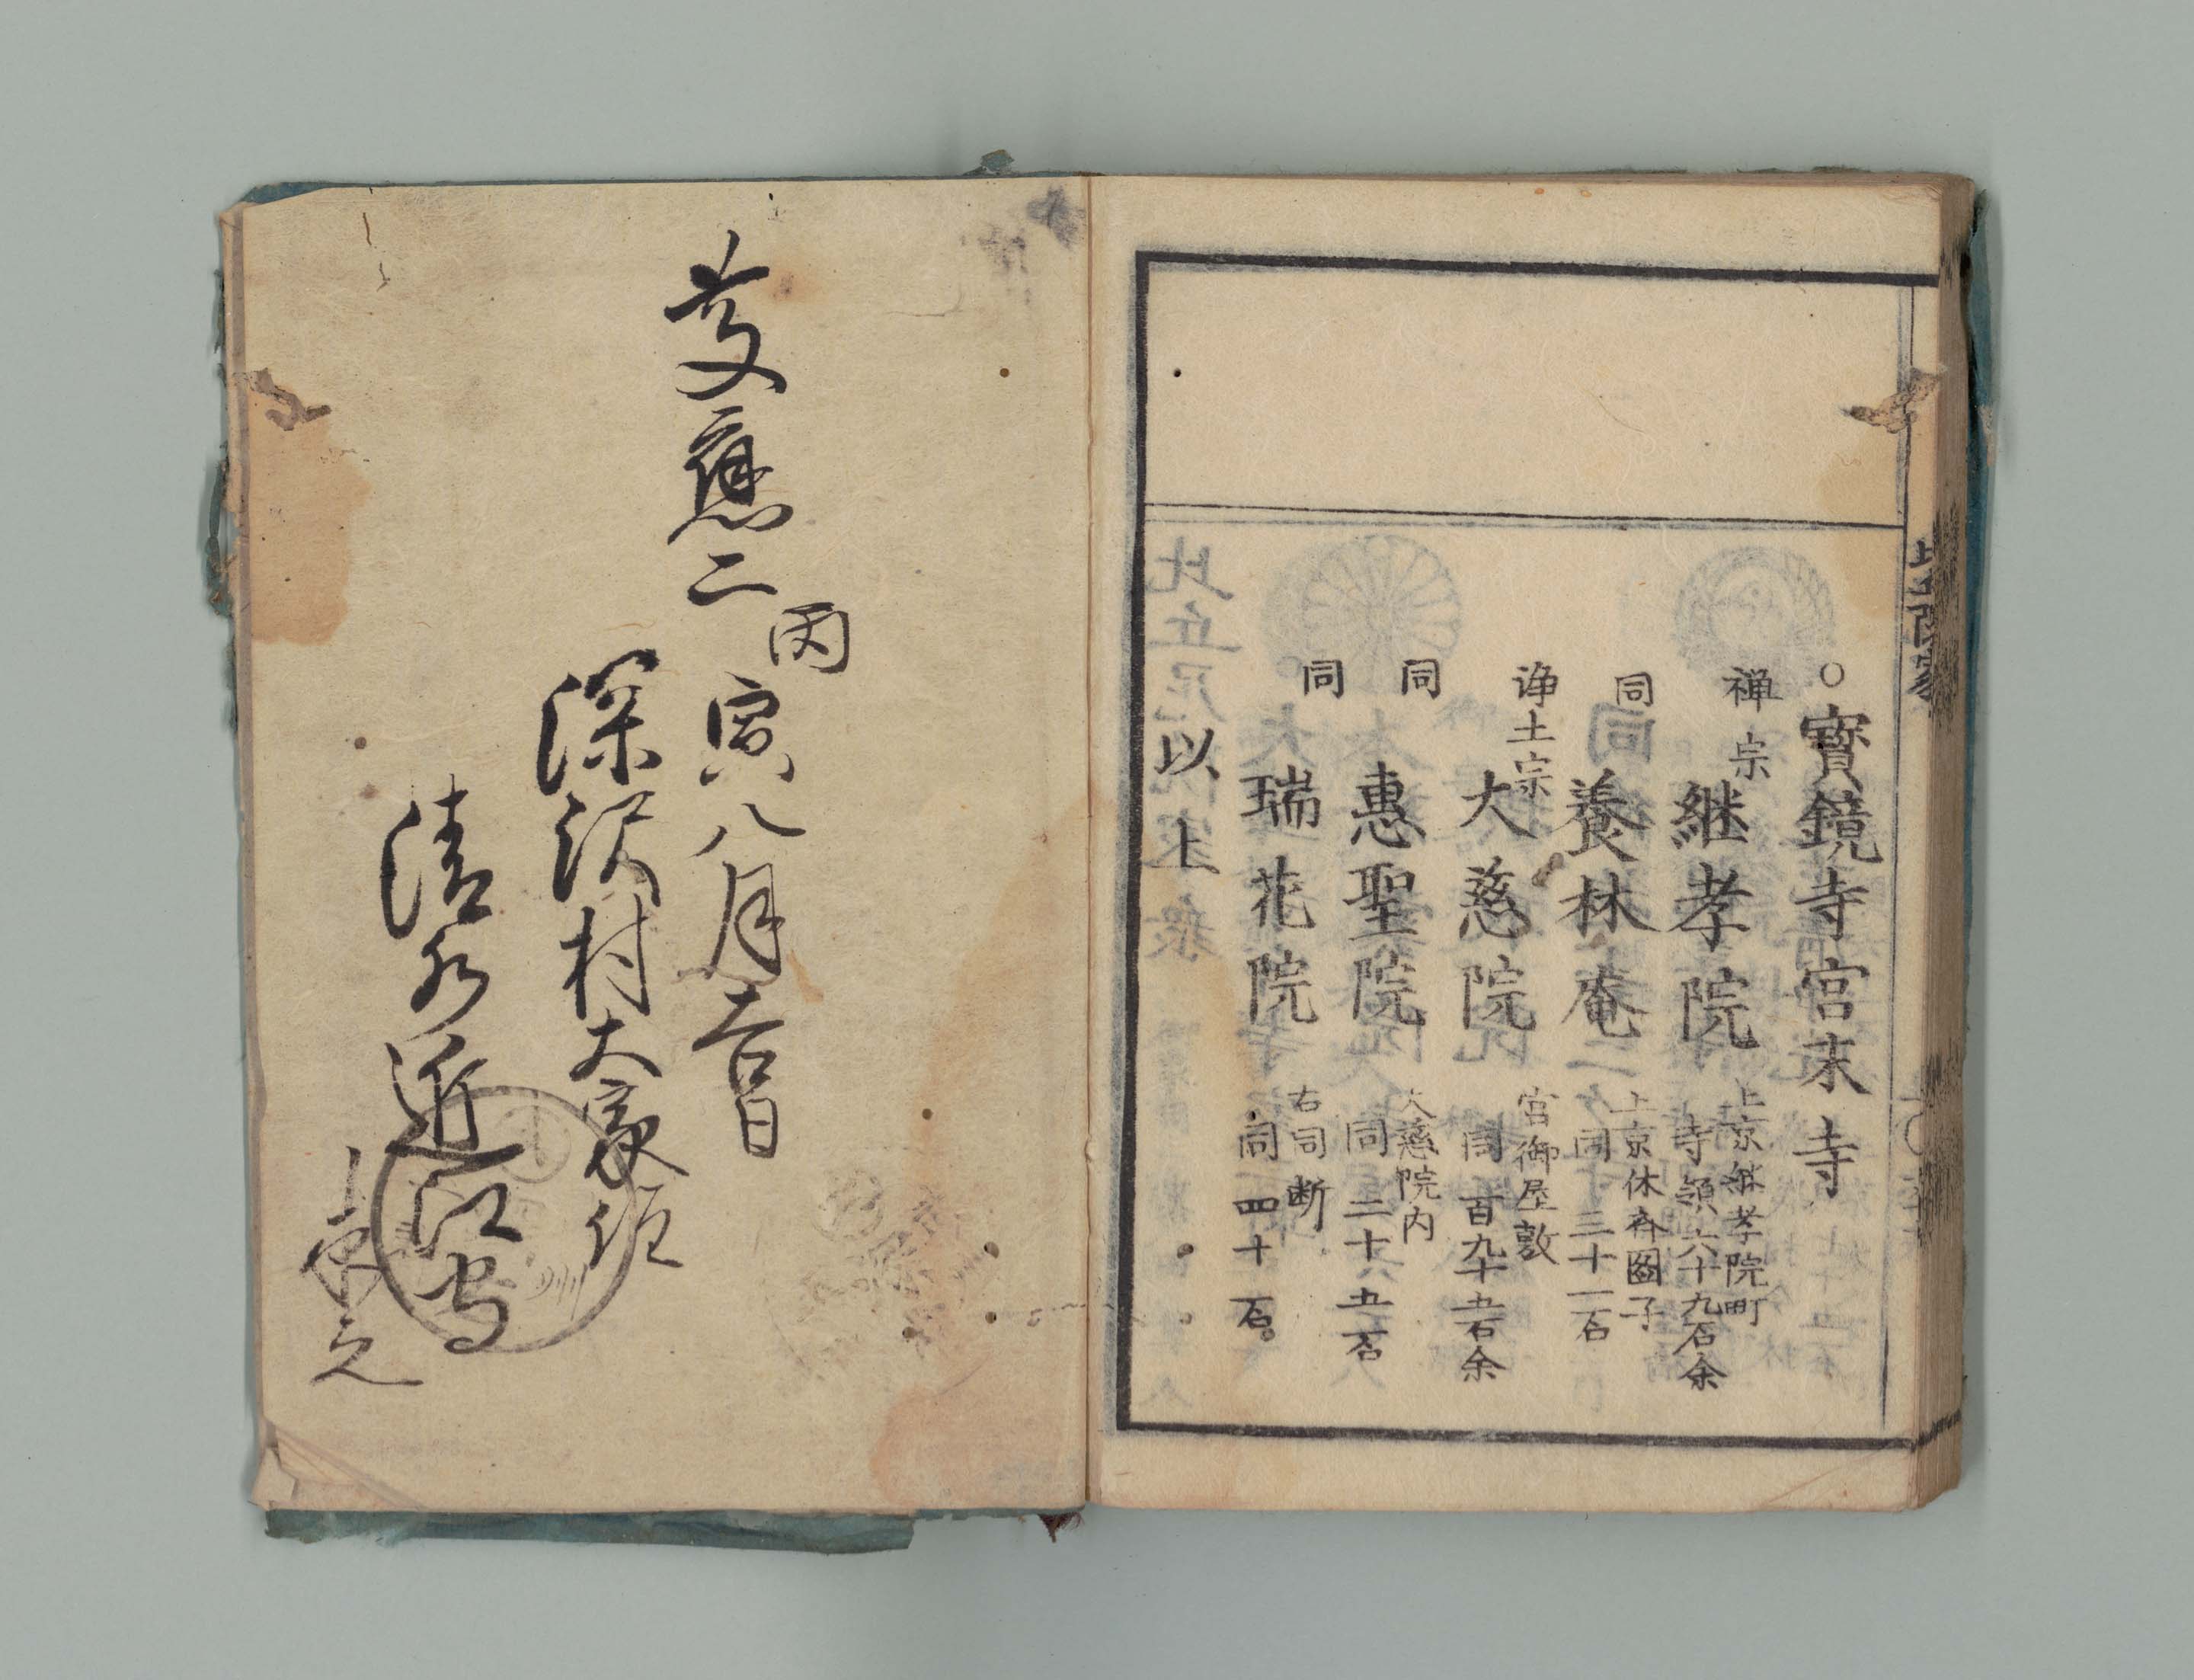 ○寳鏡寺宮末寺
禅宗 継孝院 上京継孝院町
寺領六十九石余
同 養林庵 上京休斉圖子
同 三十一石
浄土宗 大慈院 宮御屋敷
同 百九十五石余
同 惠聖院 大慈院内
同 二十六五石
同 瑞花院 右同断
同 四十一石。
以上
慶應二丙寅八月吉日
深沢村大家住
清水近江守